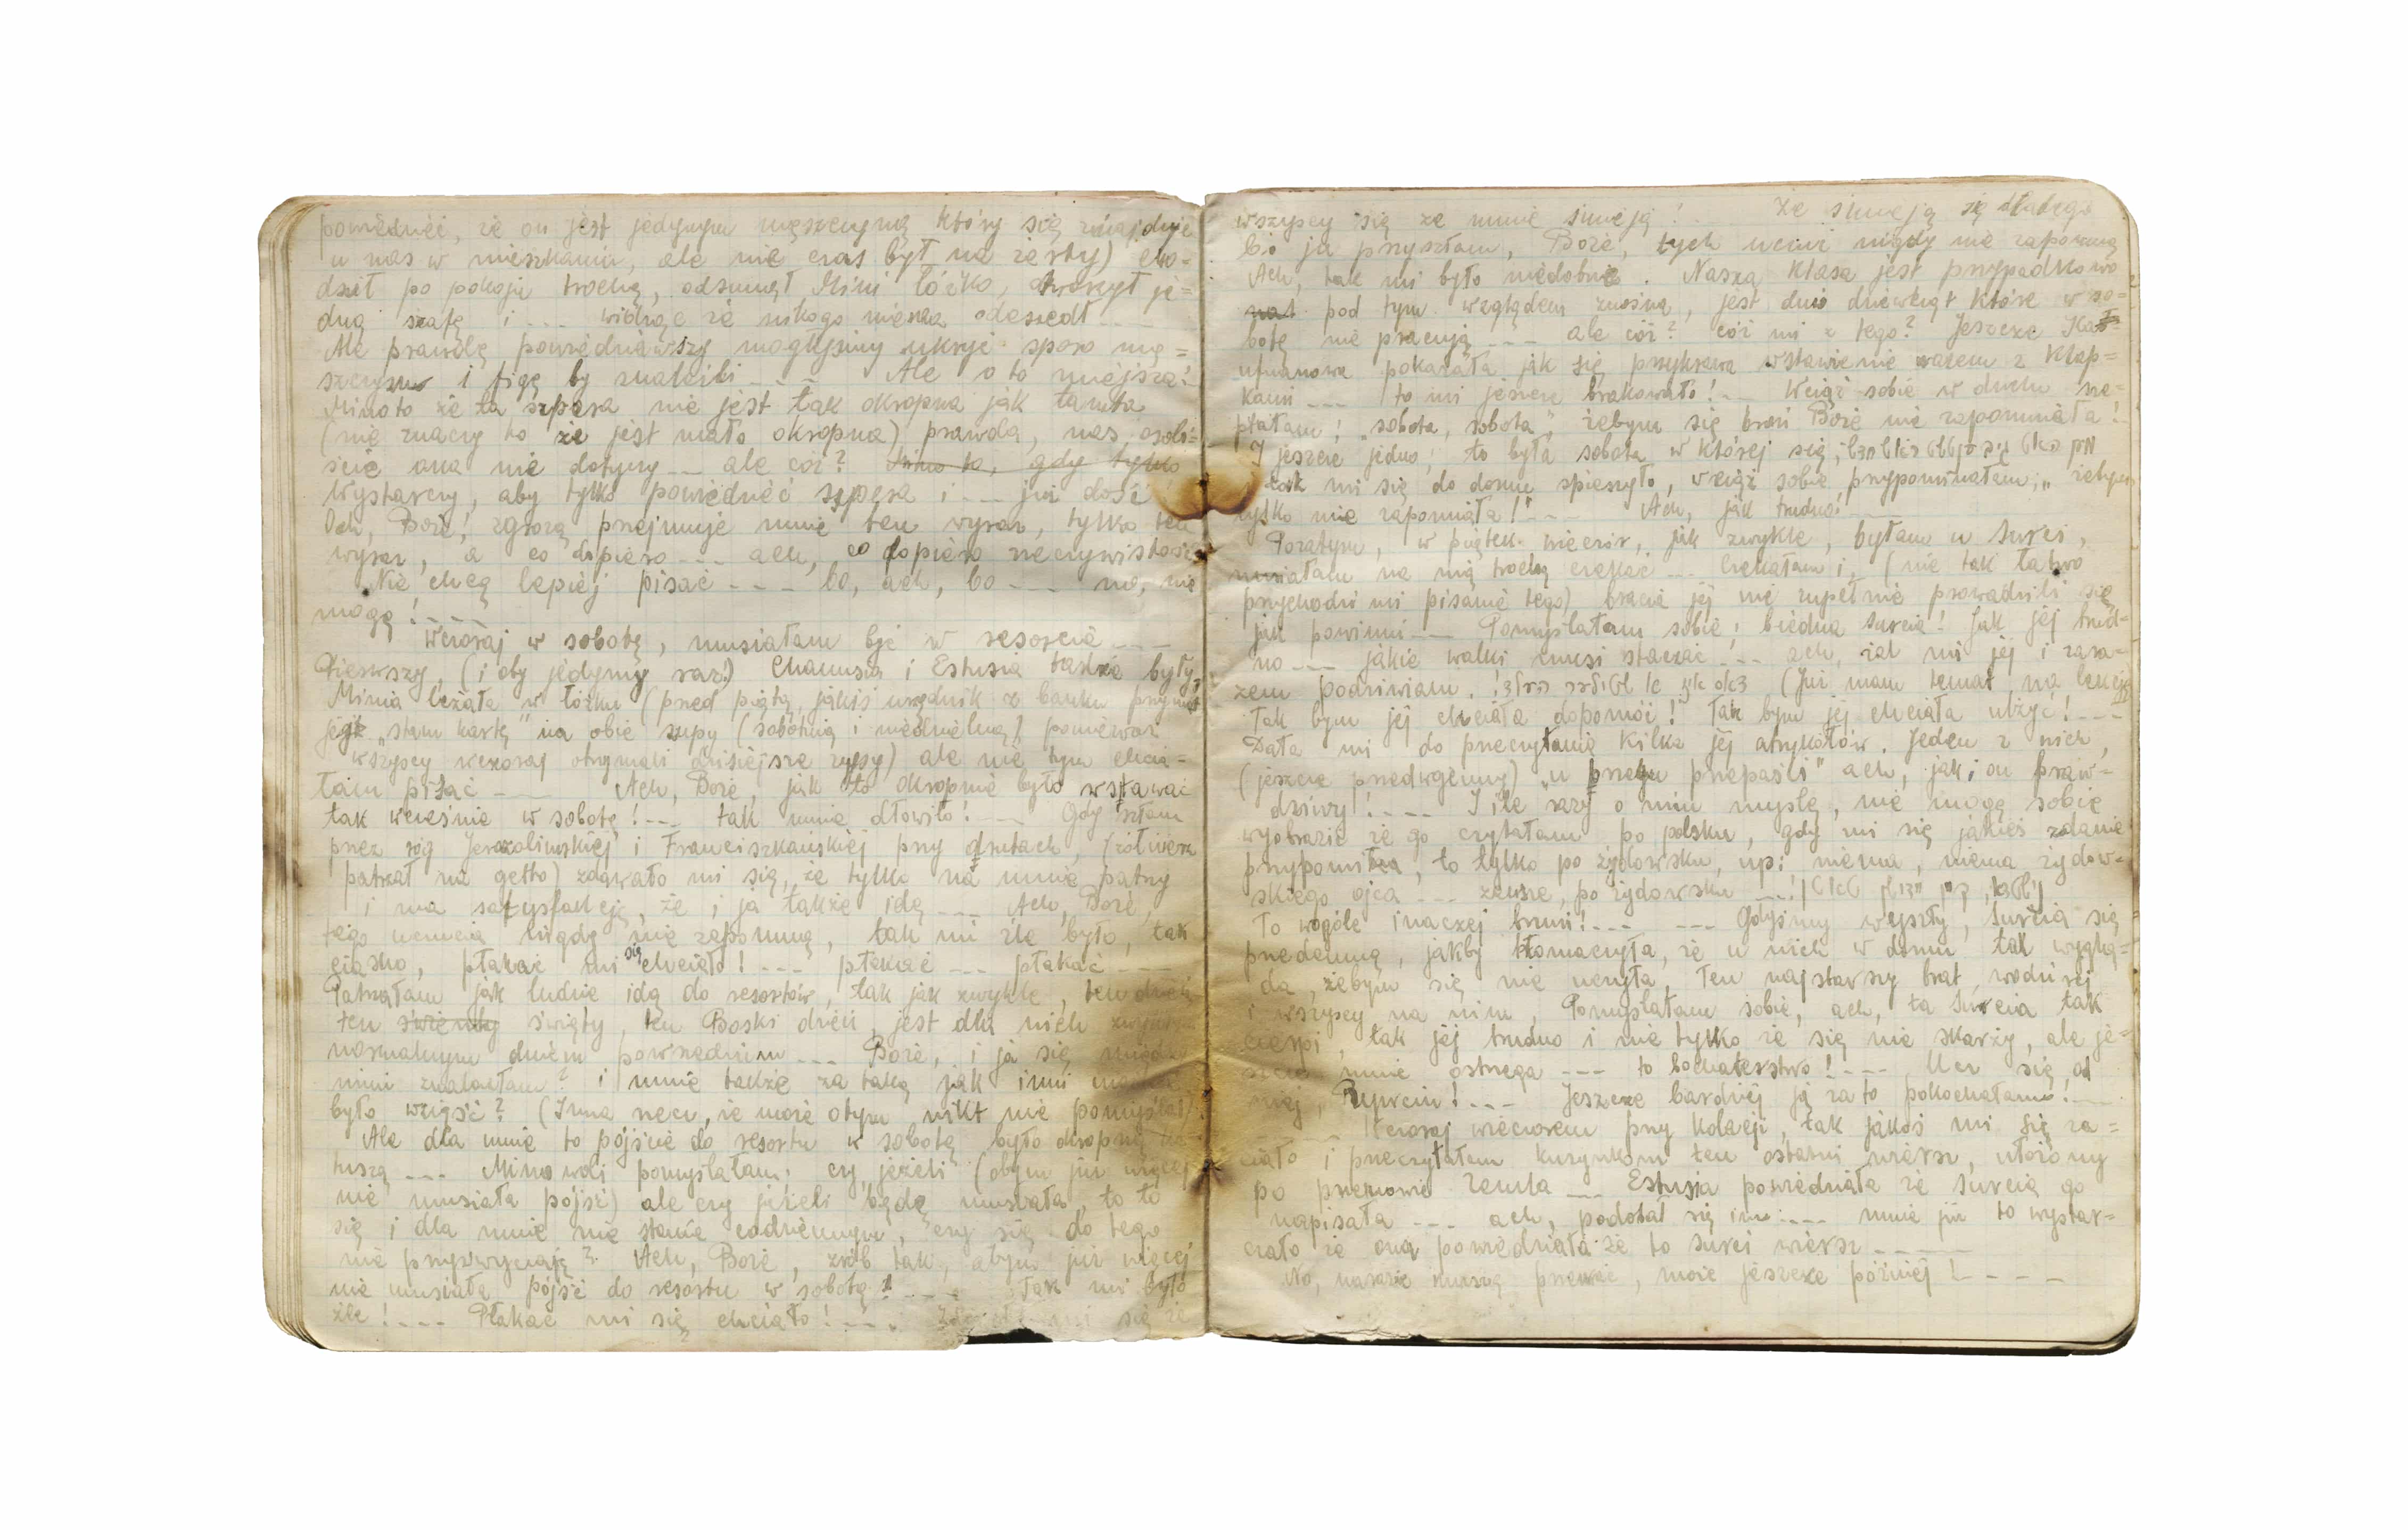 powiedzieć, że on jest jedynym mężczyzną który się znajduje
u nas w mieszkaniu, ale nie czas był na żarty) cho-
dził po pokoju trochę, odsunął Mini łóżko, otworzył je-
dną szafę i --- widząc że nikogo niema odszedł ---
Ale prawdę powiedziawszy mogłyśmy ukryć sporo mę=
szczyzn i figę by znaleźli --- Ale o to mniejsza!
Mimo to że ta szpera nie jest tak okropna jak tamta
(nie znaczy to że jest mało okropna) prawda, nas osobi=
ście ona nie dotyczy -- ale cóż? Mimo to, gdy tylko
Wystarczy, aby tylko powiedzieć szpera i --- już dość
Och, Boże! zgrozą przejmuje mnie ten wyraz, tylko ten
wyraz, a co dopiero --- ach, co dopiero rzeczywistość
Nie chcę lepiej pisać --- bo, ach, bo --- no, nie
mogę! ---
Wczoraj w sobotę, musiałam być w resorcie ---
Pierwszy, (i oby jedyny raz!) Chanusia i Estusia także były,
Minia leżała w łóżku (przed piątą, jakiś urzędnik z banku
jej „stam kartę" na obie zupy (sobotnią i niedzielną) ponieważ
wszyscy wczoraj otrzymali dzisiejsze zupy) ale nie tym chcia=
łam pisać --- Ach, Boże, jak to okropnie było wstawać
tak wcześnie w sobotę! --- tak mnie dławiło! --- Gdy szłam
przez róg Jerozolimskiej i Franciszkańskiej przy drutach, (żołnierz
patrzał na getto) zdawało mi się, że tylko na mnie patrzy
i ma satysfakcję, że i ja także idę --- Ach, Boże,
tego uczucia nigdy nie zapomnę, tak mi źle było, tak
ciężko, płakać mi się chciało! --- płakać --- płakać ---
Patrzałam jak ludzie idą do resortów, tak jak zwykle, ten dzień
ten święty święty, ten Boski dzień, jest dla nich zwykłym
normalnym dniem powszednim --- Boże, i ja się między
nimi znalazłam? i mnie także za taką jak inni
było wziąść? (Inna rzecz, że może o tym nikt nie pomyślał)
Ale dla mnie to pójście do resortu w sobotę było okropną ka=
tuszą --- Mimo woli pomyślałam: czy jeżeli (obym już więcej
nie musiała pójść) ale czy jeżeli będę musiała, to to
się i dla mnie nie stanie codziennym, czy się do tego
nie przyzwyczaję? Ach, Boże, zrób tak, abym już więcej
nie musiała pójść do resortu w sobotę! --- Tak mi było
źle! --- Płakać mi się chciało! --- Zdawało mi się że
wszyscy się ze mnie śmieją! --- że śmieją się dlatego
bo ja przyszłam, Boże, tych uczuć nigdy nie zapomnę
Ach, tak mi było niedobrze. Nasza klasa jest przypadkowo
nas pod tym względem znośna, jest dużo dziewcząt które w so=
botę nie pracują --- ale cóż? cóż mi z tego? Jeszcze Kau=
fmanowa pokazała jak się przykrawa wstawienie razem z klap=
kami --- to mi jeszcze brakowało! --- Wciąż sobie w duchu sze=
ptałam: „sobota, sobota", żebym się broń Boże nie zapomniała!
I jeszcze jedno: to była sobota w której się,
tak mi się do domu spieszyło, wciąż sobie przypominałam: „żebym
tylko nie zapomniała!" --- Ach, jak trudno! ---
Pozatym, w piątek wieczór, jak zwykle, byłam u Surci,
musiałam na nią trochę czekać --- Czekałam i, (nie tak łatwo
przychodzi mi pisanie tego) bracia jej nie zupełnie prowadzili się
jak powinni --- Pomyślałam sobie: biedna Surcia! Jak jej trud=
no --- jakie walki musi staczać --- ach, żal mi jej i zara=
zem podziwiam. (Już mam temat na lekcję
Tak bym jej chciała dopomóc! Tak bym jej chciała ulżyć! ---
Dała mi do przeczytania kilka jej atrykółów. Jeden z nich,
(jeszcze przedwojenny) „u brzegu przepaści" ach, jaki on praw=
dziwy! --- I ile razy o nim myślę, nie mogę sobie
wyobrazić że go czytałam po polsku, gdy mi się jakieś zdanie
przypomina, to tylko po żydowsku, np: niema, niema żydow=
skiego ojca --- zawsze, po żydowsku ---
To wogóle inaczej brzmi! --- --- Gdyśmy wyszły, Surcia się
przedemną, jakby tłomaczyła, że u nich w domu tak wyglą=
da, żebym się nie uczyła, Ten najstarszy brat wodzi rej
i wszyscy na nim, Pomyślałam sobie, ach, ta Surcia tak
cierpi, tak jej trudno i nie tylko że się nie skarży, ale je=
szcze mnie ostrzega --- to bochaterstwo! --- Ucz się, od
niej, Rywciu! --- Jeszcze bardziej ją za to pokochałam! ---
Wczoraj wieczorem przy kolacji, tak jakoś mi się za=
chciało i przeczytałam kuzynkom ten ostatni wiersz, ułożony
po przemowie Zemla --- Estusia powiedziała że Surcia go
napisała --- ach, podobał się im --- mnie już to wystar=
czało że ona powiedziała że to Surci wiersz ---
No, narazie muszę przerwać, może jeszcze później! ---